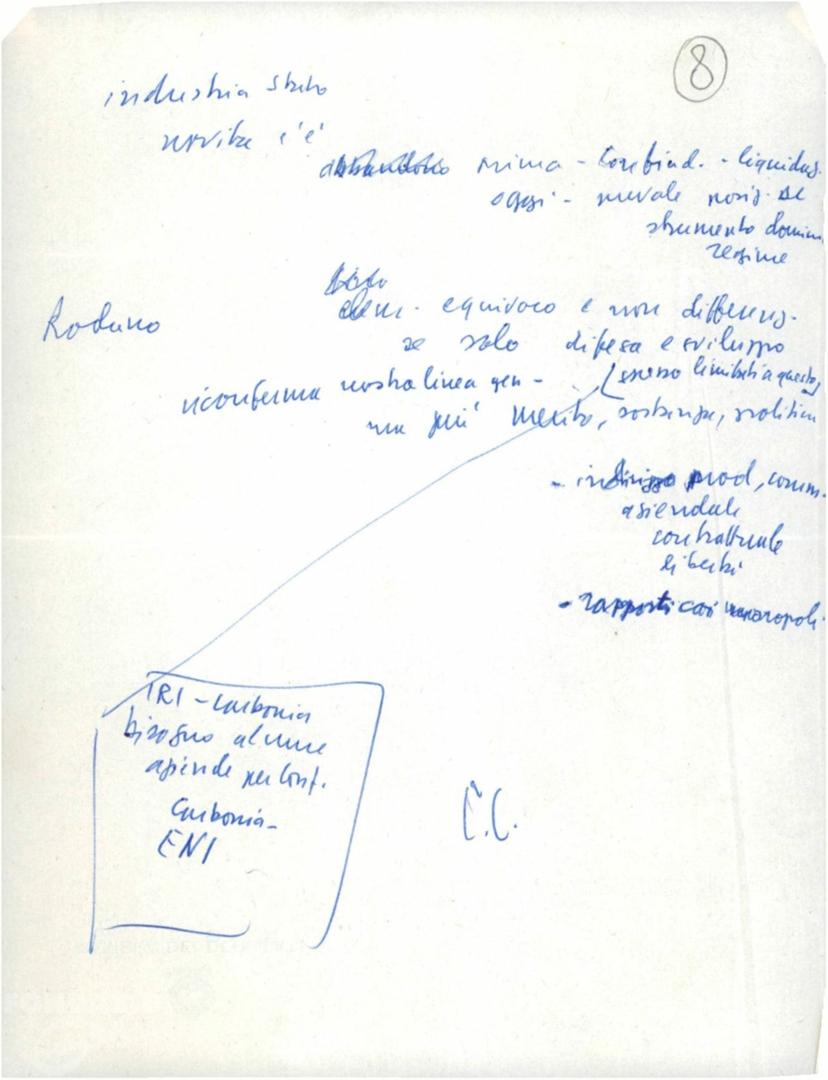 8
industria Stato
novità c'è
prima - Confind. - liquidaz.
oggi - prevale posiz. se
strumento domin.
regime
elem. equivoco e non differenz.
se solo difesa e sviluppo
(spesso limitati a questo)
riconferma nostra linea gen -
ma più merito, sostanza, politica
- indirizzo prod, comm.
aziendale
contrattuale
libertà
- rapporti coi monopoli
IRI - Carbonia
bisogno alcune
aziende per conf.
Carbonia -
ENI
C.C.